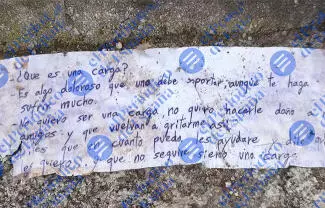 ¿Que es una carga?
Es algo doloroso que una debe soportar, aunque te haga
sufrir mucho.
No quiero ser una carga, no quiero hacerle daño a
amigas y que vuelvan a gritarme así.
que en cuanto pueda les ayudare,
quiero, y que no seguire siendo una carga.